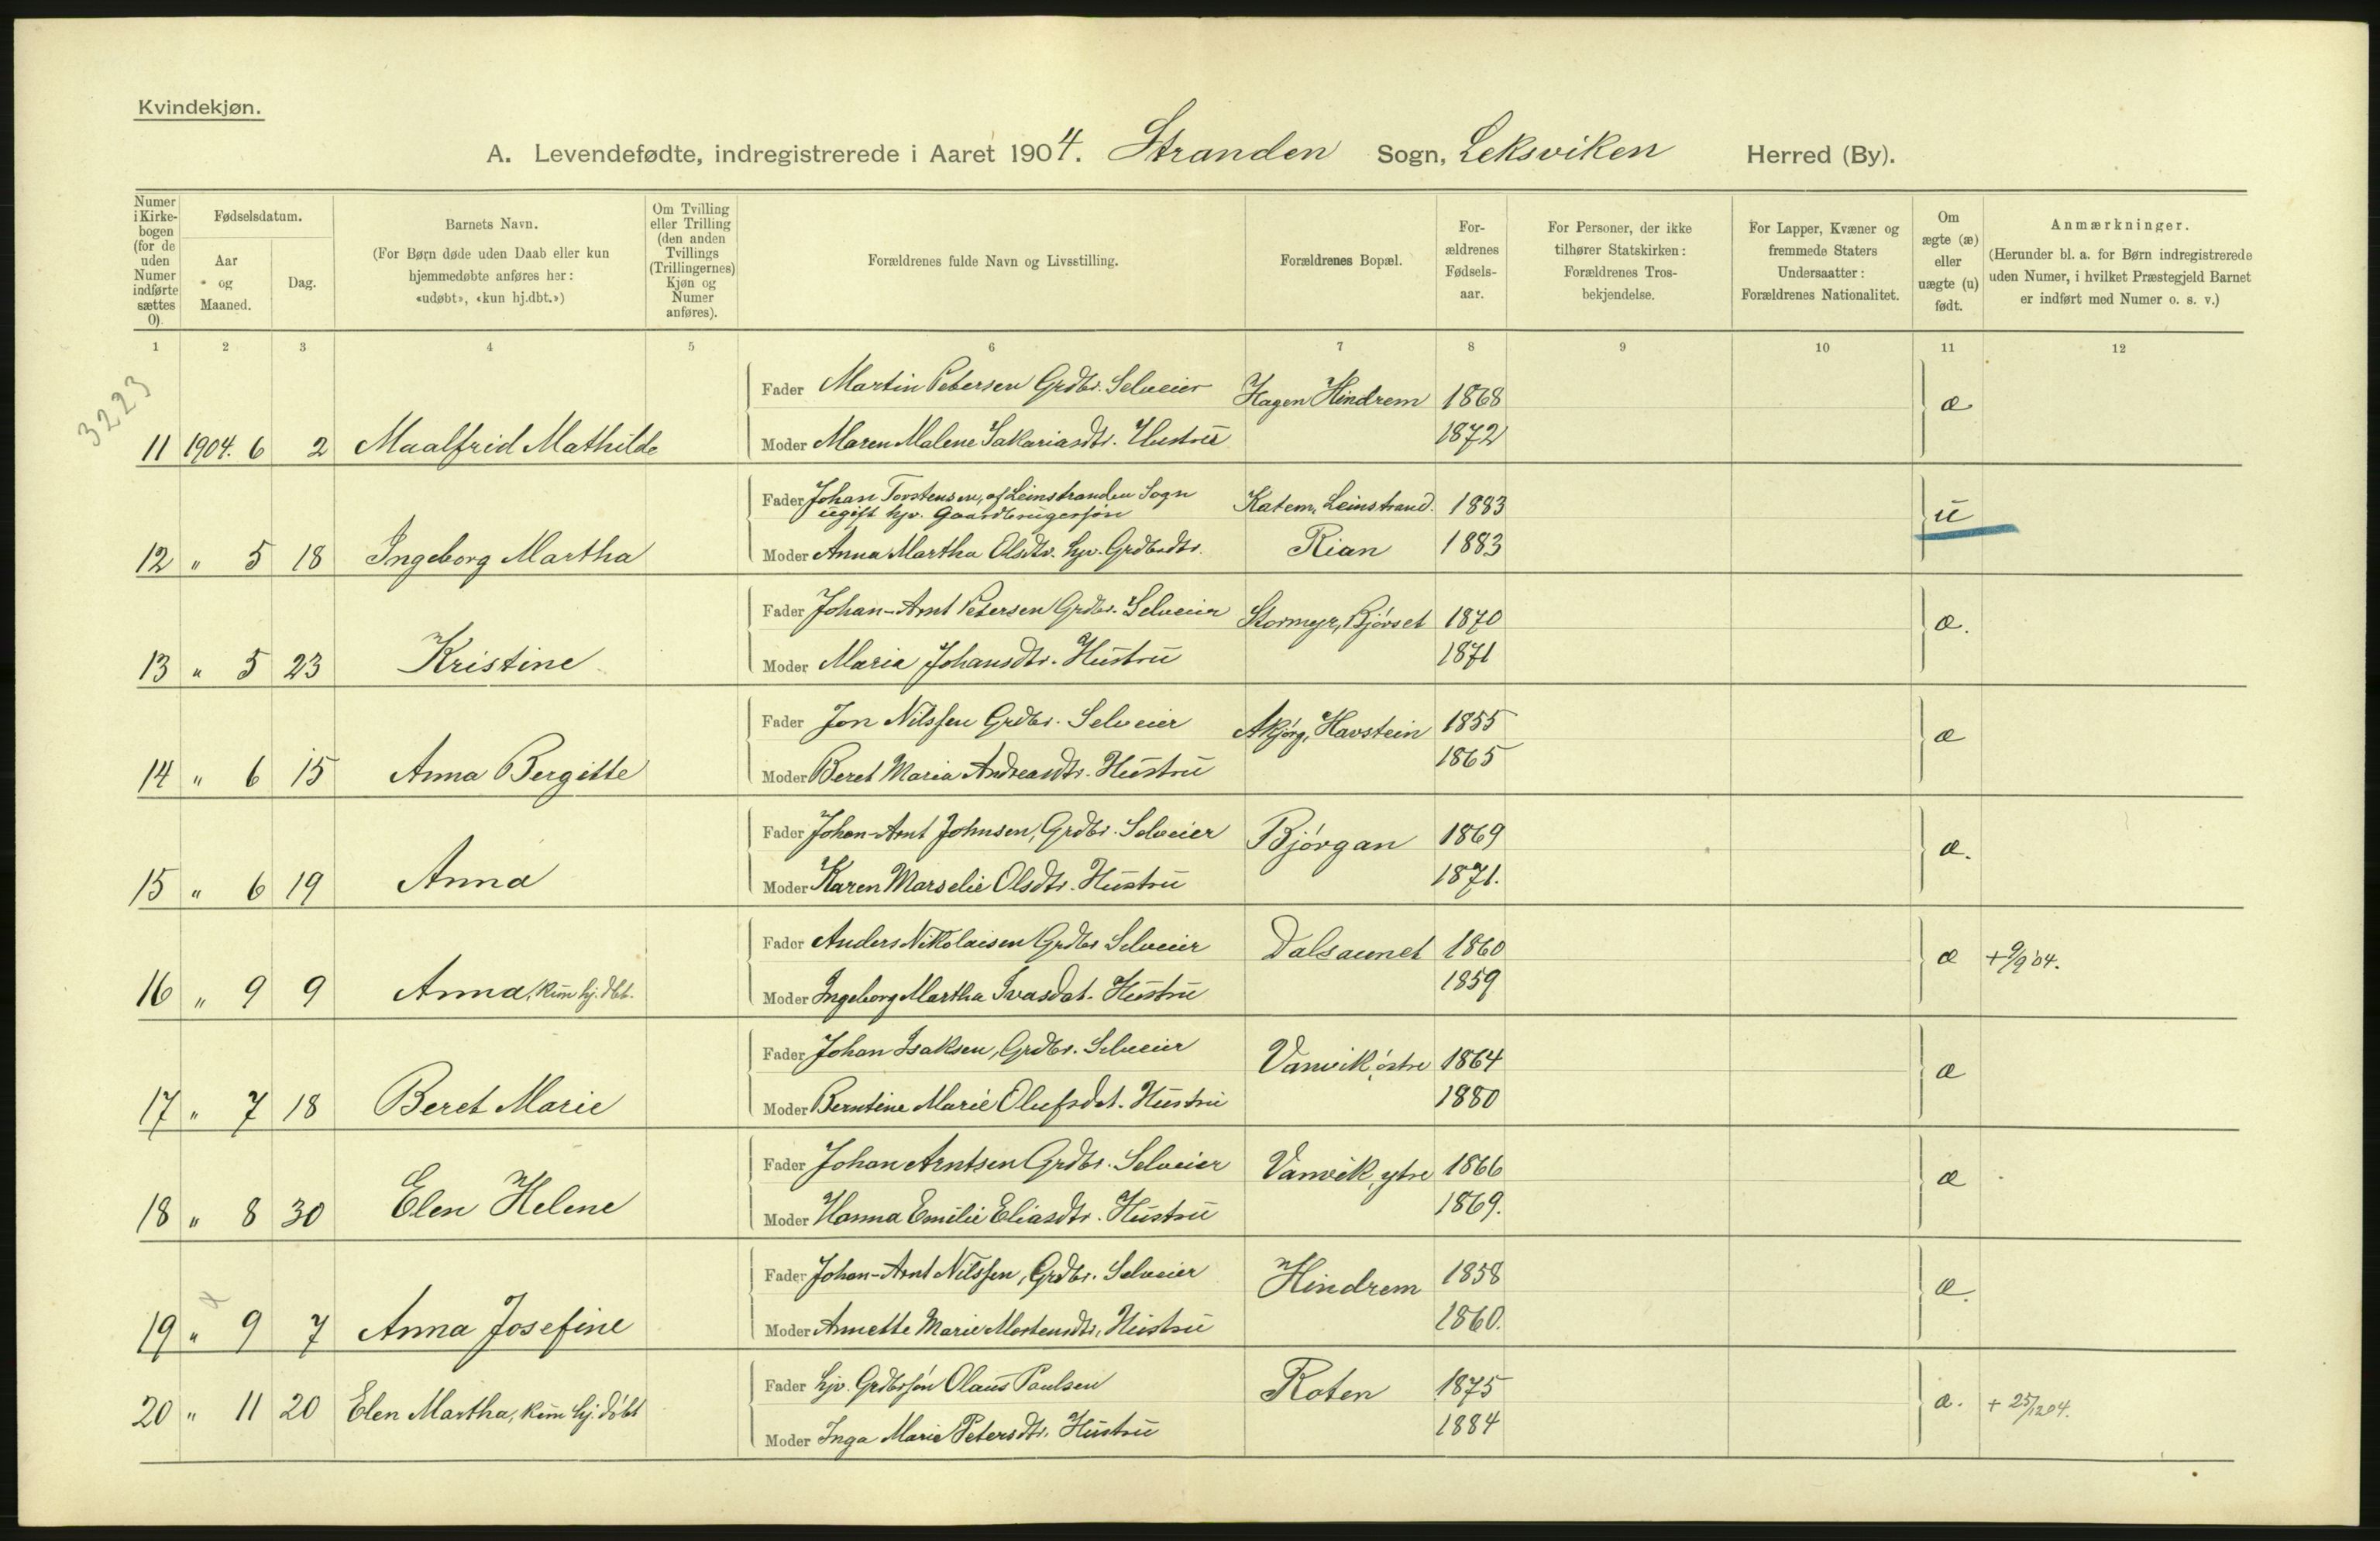 Kvindekjøn.
A. Levendefødte, indregistrerede i Aaret 1904. Stranden Sogn, Leksviken Herred (By).
Numer i Kirke-bogen (for de uden Numer indførte sættes 0).
Fødselsdatum.
Aar og Maaned.
Dag.
Barnets Navn.
(For Børn døde uden Daab eller kun
hjemmedøbte anføres her:
«udøbt», «kun hj.dbt.»)
Om Tvilling
eller Trilling
(den anden
Tvillings
(Trillingernes)
Kjøn og
Numer
anføres).
Forældrenes fulde Navn og Livsstilling.
Forældrenes Bopæl.
For-
ældrenes
Fødsels-
aar.
For Personer, der ikke
tilhører Statskirken:
Forældrenes Tros-
bekjendelse.
For Lapper, Kvæner og
fremmede Staters
Undersaatter:
Forældrenes Nationalitet.
Om
ægte (æ)
eller
uægte (u)
født.
Anmærkninger.
(Herunder bl. a. for Børn indregistrerede
uden Numer, i hvilket Præstegjeld Barnet
er indført med Numer o. s. v.)
1 2 3 4 5 6 7 8 9 10 11 12
3223
Fader Martin Petersen Grdbr. Selveier Hagen Hindrem 1868 æ
11 1904. 6 2 Maalfrid Mathilde Moder Maren Malene Sakariasdtr. Hustru 1872
Fader Johan Torstensen, af Leinstranden Sogn Katem, Leinstrand. 1883 u
ugift hjv. Gaardbrugersøn
12 " 5 18 Ingeborg Martha Moder Anna Martha Olsdtr. hjv. Grdbrdtr. Rian 1883
Fader Johan-Arnt Petersen Grdbr. Selveier Stormyr, Bjørset 1870 æ.
13 " 5 23 Kristine Moder Maria Johansdtr. Hustru 1871
Fader Jon Nilssen Grdbr. Selveier Akjørg, Havstein 1855 æ
14 " 6 15 Anna Bergitte Moder Beret Maria Andreasdtr. Hustru 1865
Fader Johan-Arnt Johnsen, Grdbr. Selveier Bjørgan 1869 æ.
15 " 6 19 Anna Moder Karen Marselie Olsdtr. Hustru 1871.
Fader Anders Nikolaisen Grdbr Selveier Dalsaunet 1860 æ + 9/9 04.
16 " 9 9 Anna, kun hj. dbt. Moder Ingeborg Martha Ivasdat. Hustru 1859
Fader Johan Isaksen, Grdbr. Selveier Vanvik, østre 1864 æ
17 " 7 18 Beret Marie Moder Berntine Marie Olufsdat. Hustru 1880
Fader Johan Arntsen Grdbr. Selveier Vanvik, ytre 1866 æ
18 " 8 30 Elen Helene Moder Hanna Emilie Eliasdtr. Hustru 1869.
Fader Johan-Arnt Nilssen, Grdbr. Selveier Hindrem 1858 æ.
19 " 9 7 Anna Josefine Moder Annette Marie Mortensdtr. Hustru 1860.
Fader hjv. Grdbrsøn Olaus Paulsen Roten 1875 æ. + 25/12 04.
20 " 11 20 Elen Martha, kun hj. døbt Moder Inga Marie Petersdtr. Hustru 1884